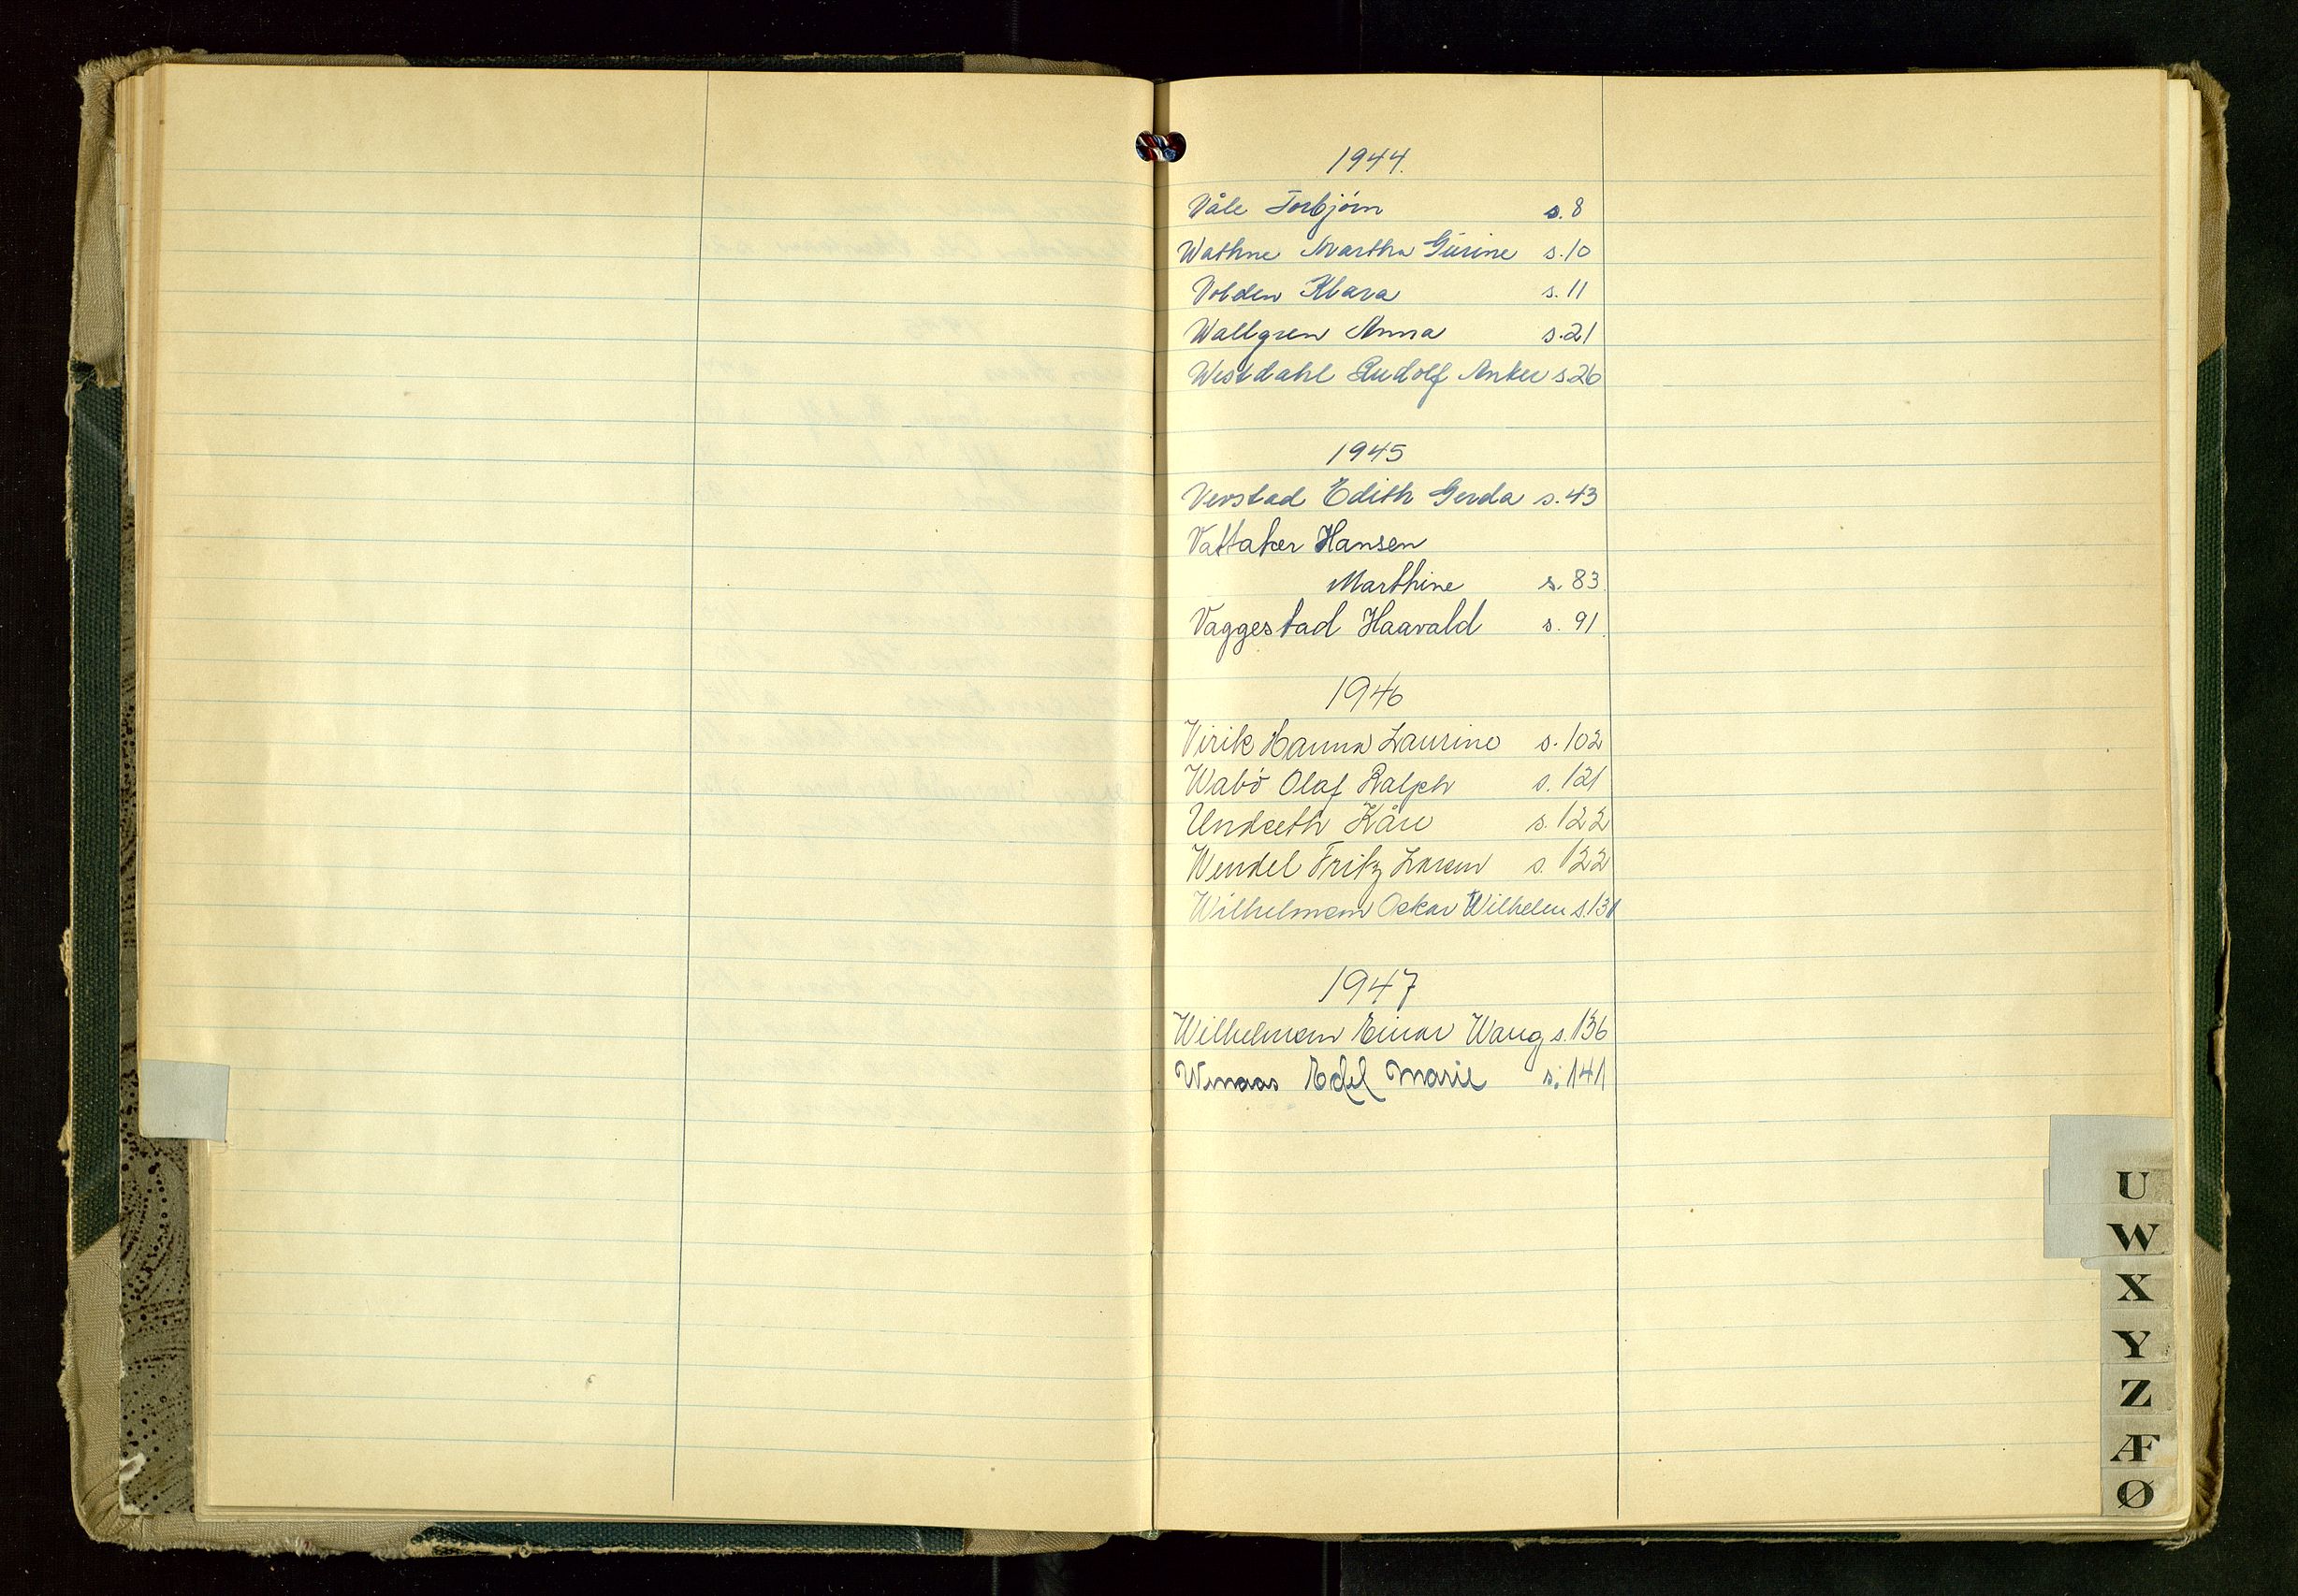 1944.
Våle Torbjörn s. 8
Wathne Martha Gurine s. 10
Volden Klara s. 11
Wallgren Anna s. 21
Westdahl Rudolf Anker s. 26
1945
Verstad Edith Gerda s. 43
Vattaker Hansen
Marthine s. 83
Vaggestad Haavald s. 91
1946
Virik Hanna Laurine s. 102
Wabö Olaf Ralph s. 121
Undseth Kåre s. 122
Wendel Fritz s. 122
Wilhelmsen Oskar Wilhelm s. 131
1947
Wilhelmsen Einar Wang s. 136
Edel Marie s. 141
U
W
X
Y
Z
Æ
Ø